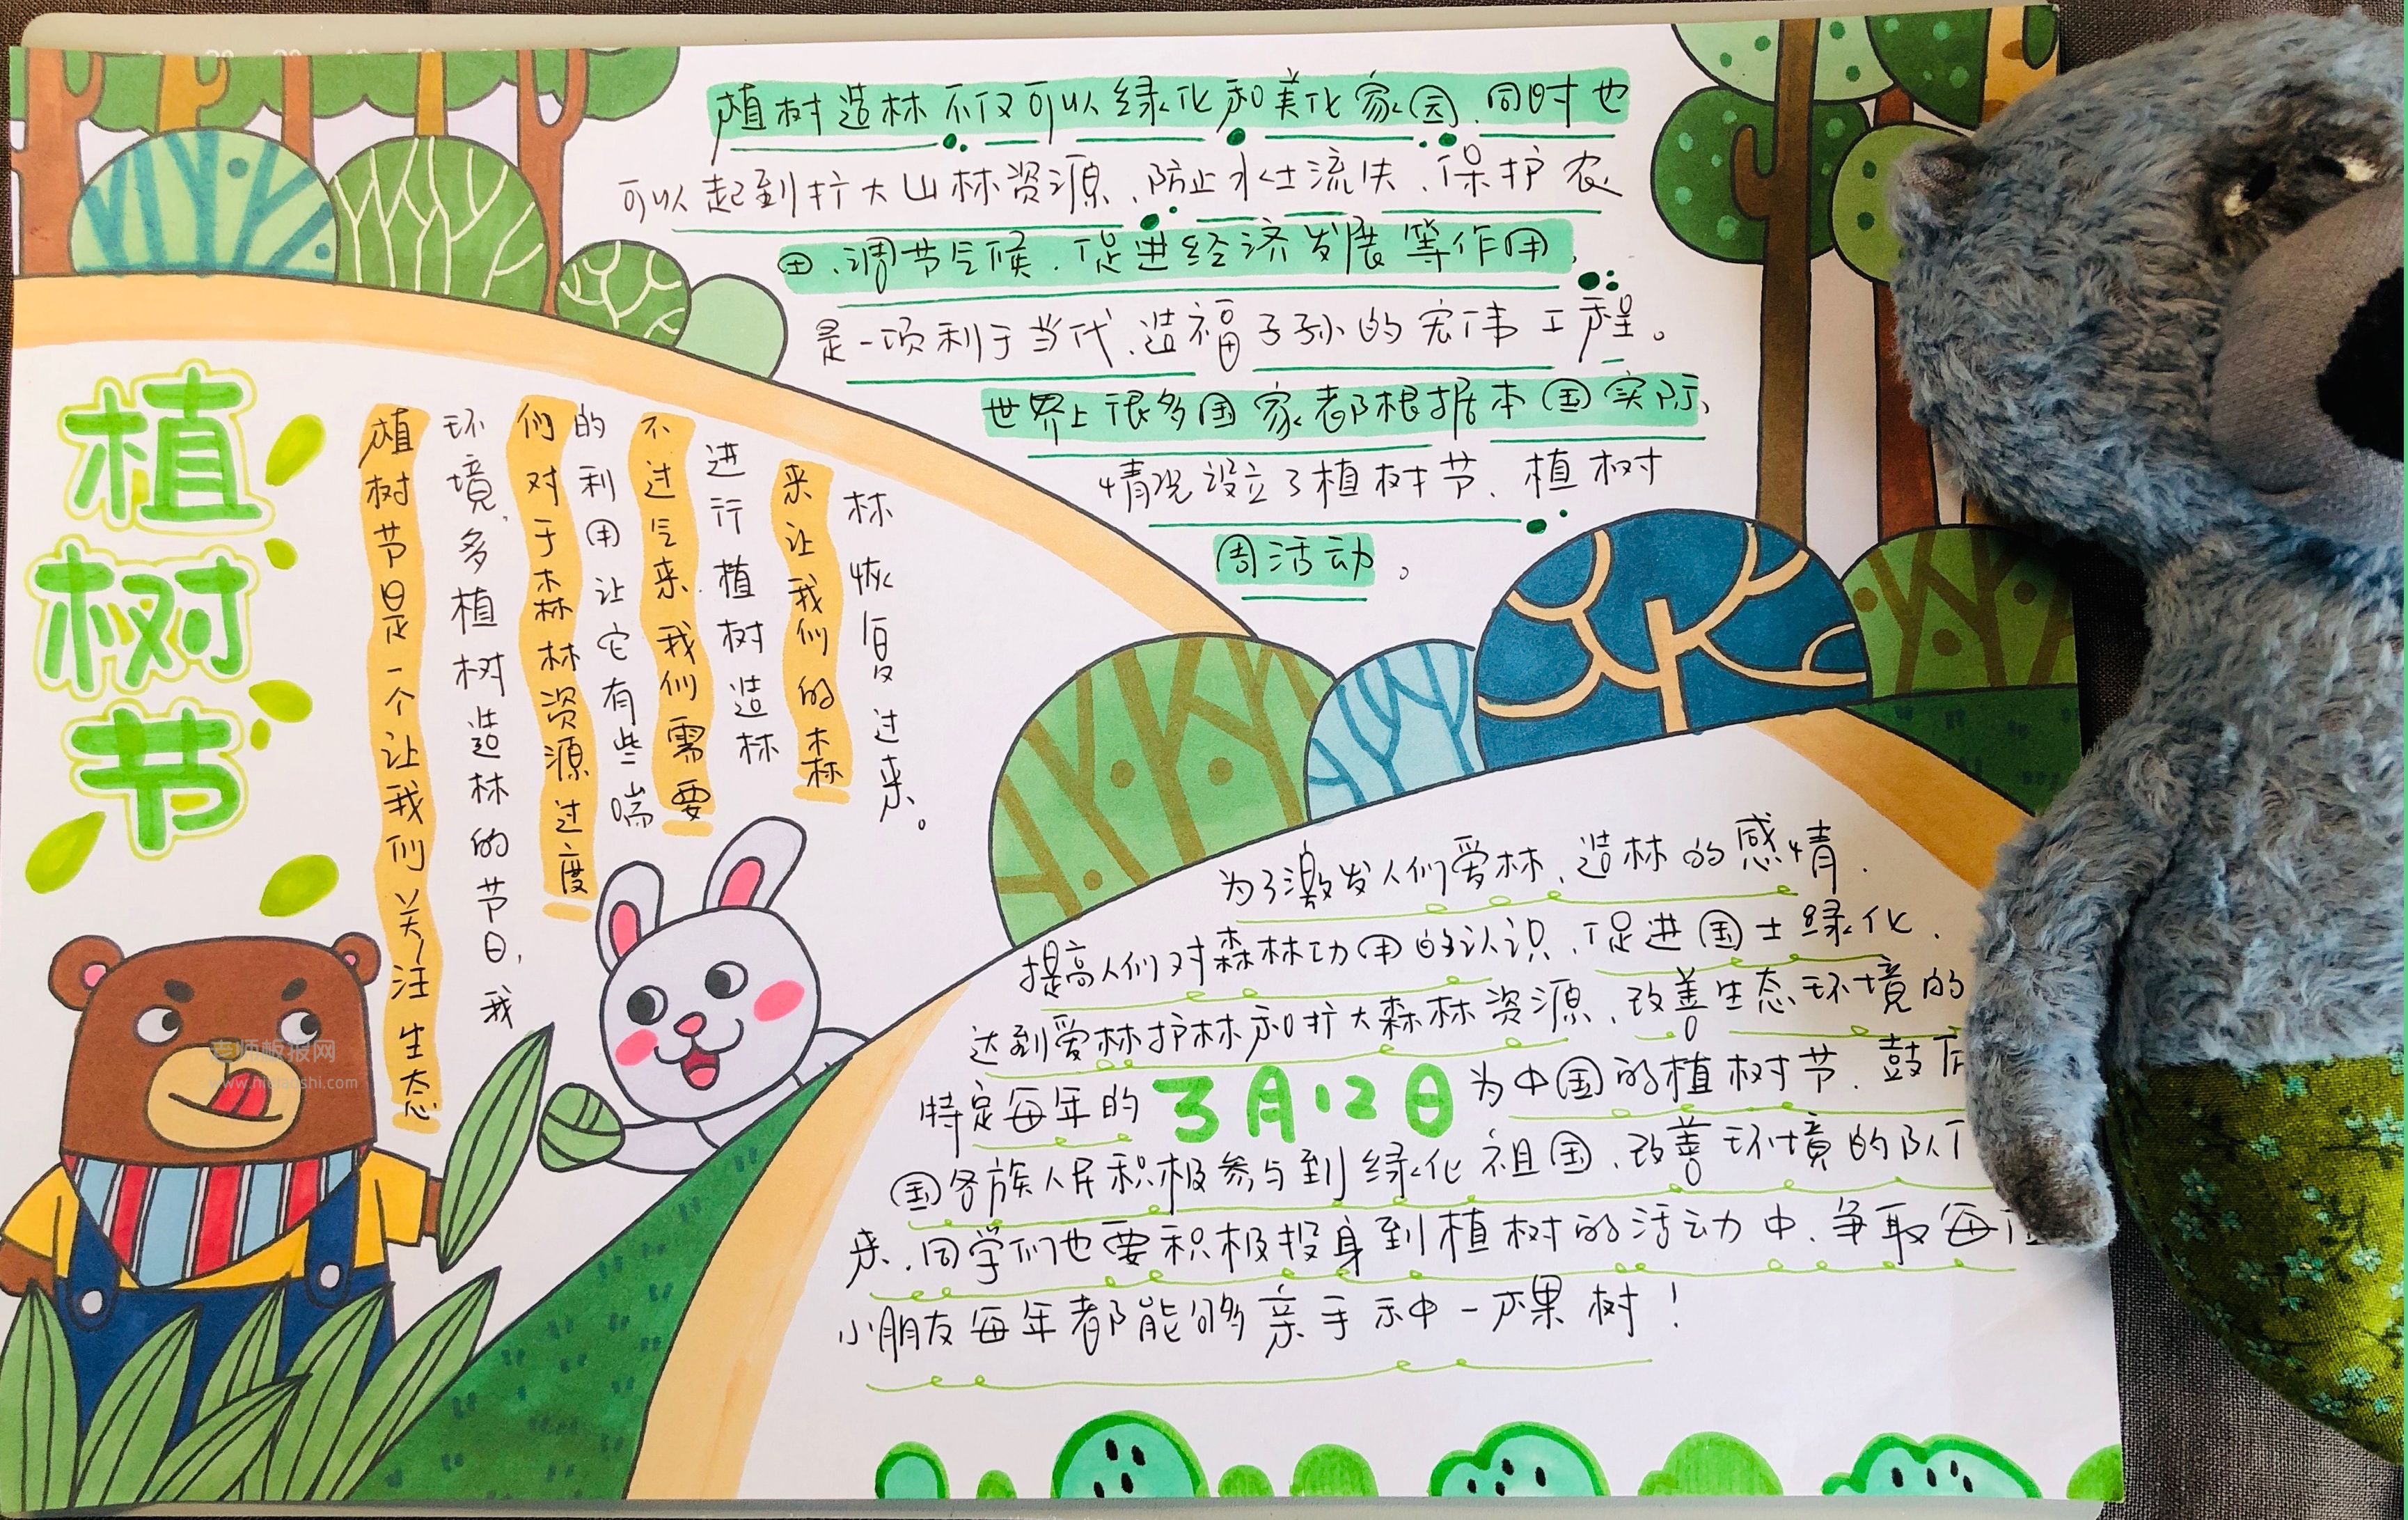 植树节
植树节是一个让我们关注生态
环境,多植树造林的节日,我
们对于森林资源过度
的利用让它有些喘
不过气来.我们需要
进行植树造林
来让我们的森
林恢复过来。
植树造林不仅可以绿化和美化家园.同时也
可以起到扩大山林资源、防止水土流失、保护农
田、调节气候、促进经济发展等作用,
是一项利于当代、造福子孙的宏伟工程。
世界上很多国家都根据本国实际
情况设立了植树节、植树
周活动。
为了激发人们爱林、造林的感情.
提高人们对森林功用的认识,促进国土绿化.
达到爱林护林和扩大森林资源、改善生态环境的
特定每年的3月12日为中国的植树节.鼓
国各族人民积极参与到绿化祖国、改善环境的队
来.同学们也要积极投身到植树的活动中.争取每
小朋友每年都能够亲手种一棵树!
老师板报网